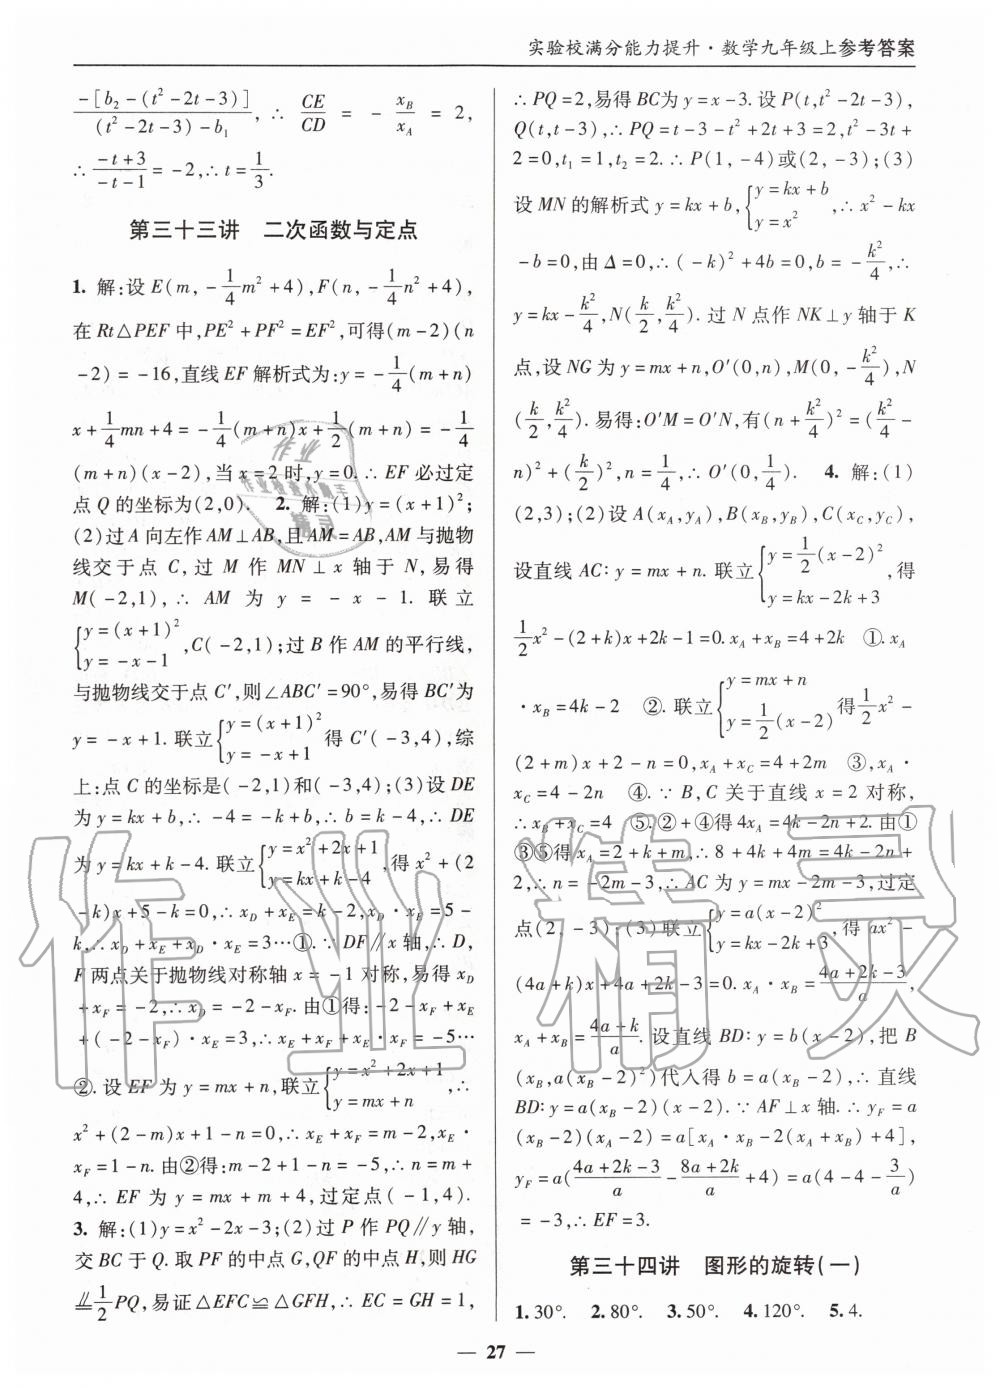 实验校满分能力提升·数学九年级上参考答案
-[b₂-(t²-2t-3)]/(t²-2t-3)-b₁, ∴ CE/CD = -x_B/x_A = 2,
∴ (-t+3)/(-t-1) = -2,∴t=1/3.
第三十三讲 二次函数与定点
1. 解:设E(m,-1/4m²+4),F(n,-1/4n²+4),
在Rt△PEF中,PE²+PF²=EF²,可得(m-2)(n
-2)=-16,直线EF解析式为:y=-1/4(m+n)
x+1/4mn+4=-1/4(m+n)x+1/2(m+n)=-1/4
(m+n)(x-2),当x=2时,y=0.∴EF必过定
点Q的坐标为(2,0). 2. 解:(1)y=(x+1)²;
(2)过A向左作AM⊥AB,且AM=AB,AM与抛物
线交于点C,过M作MN⊥x轴于N,易得
M(-2,1),∴AM为y=-x-1.联立
{y=(x+1)² y=-x-1,C(-2,1);过B作AM的平行线,
与抛物线交于点C′,则∠ABC′=90°,易得BC′为
y=-x+1.联立{y=(x+1)² y=-x+1得C′(-3,4),综
上:点C的坐标是(-2,1)和(-3,4);(3)设DE
为y=kx+b,∴-4=-k+b,∴b=k-4,∴DE
为y=kx+k-4.联立{y=x²+2x+1 y=kx+k-4,得x²+(2
-k)x+5-k=0,∴x_D+x_E=k-2,x_D·x_E=5-
k,∴x_D+x_E+x_D·x_E=3…①.∵DF∥x轴,∴D,
F两点关于抛物线对称轴x=-1对称,易得x_D
+x_F=-2,∴x_D=-2-x_F.由①得:-2-x_F+x_E
+(-2-x_F)·x_E=3,∴x_F+x_E+x_E·x_F=-5…
②.设EF为y=mx+n,联立{y=x²+2x+1 y=mx+n,∴
x²+(2-m)x+1-n=0,∴x_E+x_F=m-2,x_E·
x_F=1-n.由②得:m-2+1-n=-5,∴n=m+
4,∴EF为y=mx+m+4,过定点(-1,4).
3. 解:(1)y=x²-2x-3;(2)过P作PQ∥y轴,
交BC于Q.取PF的中点G,QF的中点H,则HG
⫽1/2PQ,易证△EFC≌△GFH,∴EC=GH=1,
∴PQ=2,易得BC为y=x-3.设P(t,t²-2t-3),
Q(t,t-3),∴PQ=t-3-t²+2t+3=2,t²-3t+
2=0,t₁=1,t₂=2.∴P(1,-4)或(2,-3);(3)
设MN的解析式y=kx+b,{y=kx+b y=x²,∴x²-kx
-b=0,由Δ=0,∴(-k)²+4b=0,b=-k²/4,∴
y=kx-k²/4,N(k/2,k²/4).过N点作NK⊥y轴于K
点,设NG为y=mx+n,O′(0,n),M(0,-k²/4),N
(k/2,k²/4).易得:O′M=O′N,有(n+k²/4)²=(k²/4-
n)²+(k/2)²,n=1/4,∴O′(0,1/4). 4. 解:(1)
(2,3);(2)设A(x_A,y_A),B(x_B,y_B),C(x_C,y_C),
设直线AC:y=mx+n.联立{y=1/2(x-2)² y=kx-2k+3,得
1/2x²-(2+k)x+2k-1=0.x_A+x_B=4+2k ①.x_A
·x_B=4k-2 ②.联立{y=mx+n y=1/2(x-2)得1/2x²-
(2+m)x+2-n=0,x_A+x_C=4+2m ③,x_A·
x_C=4-2n ④.∵B,C关于直线x=2对称,
∴x_B+x_C=4 ⑤.②+④得4x_A=4k-2n+2.由①
③⑤得x_A=2+k+m,∴8+4k+4m=4k-2n+
2,∴n=-2m-3,∴AC为y=mx-2m-3,过定
点(2,-3);(3)联立{y=a(x-2)² y=kx-2k+3,得ax²-
(4a+k)x+4a+2k-3=0.x_A·x_B=(4a+2k-3)/a,
x_A+x_B=(4a+k)/a.设直线BD:y=b(x-2),把B
(x_B,a(x_B-2)²)代入得b=a(x_B-2),∴直线
BD:y=a(x_B-2)(x-2).∵AF⊥x轴.∴y_F=a
(x_B-2)(x_A-2)=a[x_A·x_B-2(x_A+x_B)+4],
y_F=a((4a+2k-3)/a-(8a+2k)/a+4)=a(4-4-3/a)
=-3,∴EF=3.
第三十四讲 图形的旋转(一)
1.30°. 2.80°. 3.50°. 4.120°. 5.4.
— 27 —
作业精灵